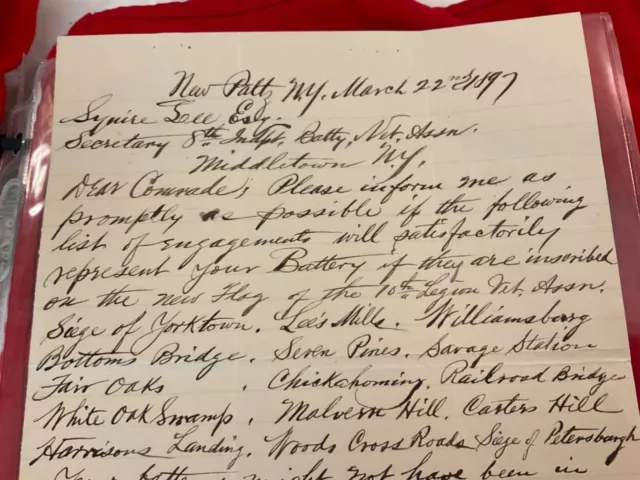 New Paltz N.Y. March 22nd 1897
Squire Lee, Esq.
Secretary 8th Indpt. Batty. Vet. Assn.
Middletown N.Y.
Dear Comrade; Please inform me as
promptly as possible if the following
list of engagements will satisfactorily
represent your Battery if they are inscribed
on the new Flag of the 10th Legion Vet. Assn.
Siege of Yorktown. Lee's Mills. Williamsburg
Bottoms Bridge. Seven Pines. Savage Station
Fair Oaks . Chickahominy. Railroad Bridge
White Oak Swamp. Malvern Hill. Carters Hill
Harrisons Landing. Woods Cross Roads Siege of Petersburgh
might not have been in